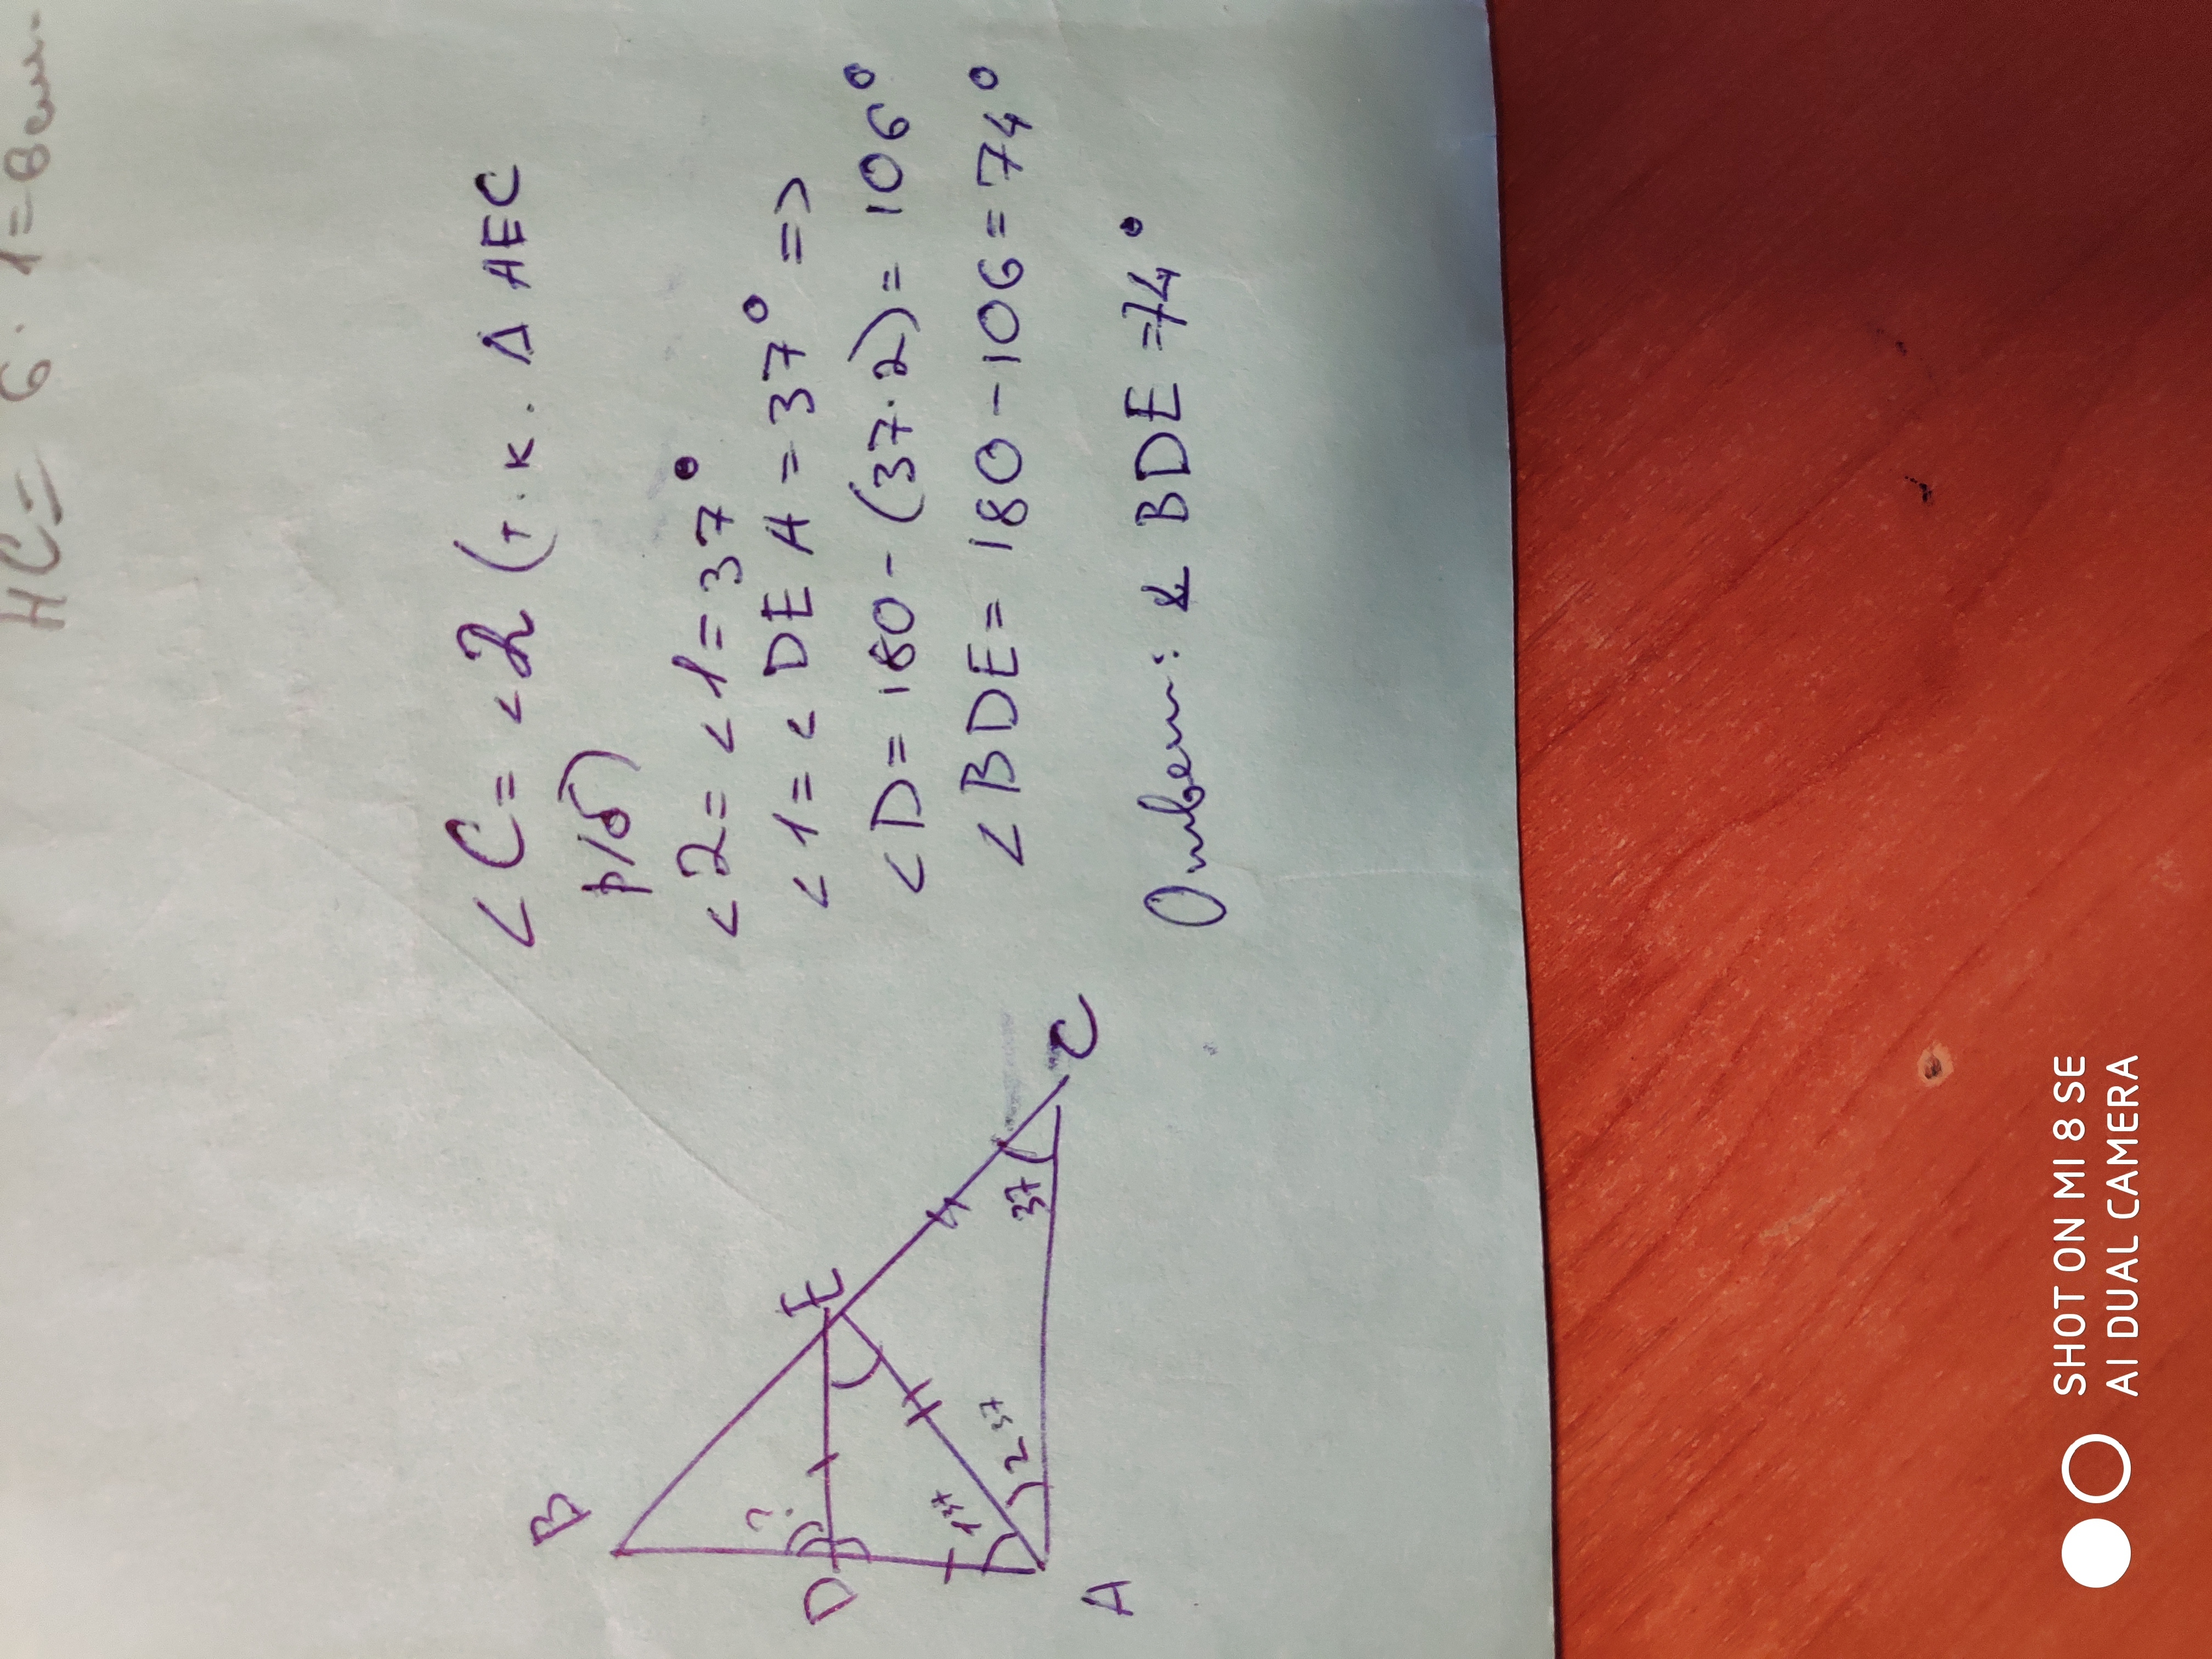 HC= 6 · 1=8см.
<C= <2 (т.к. Δ AEC
р/б)
<2= <1=37°
<1= < DEA=37° =>
<D= 180-(37·2)= 106°
<BDE= 180-106=74°
Ответ: & BDE=74°
B
?
D
E
1 37
2 37
37
A
C
SHOT ON MI 8 SE
AI DUAL CAMERA